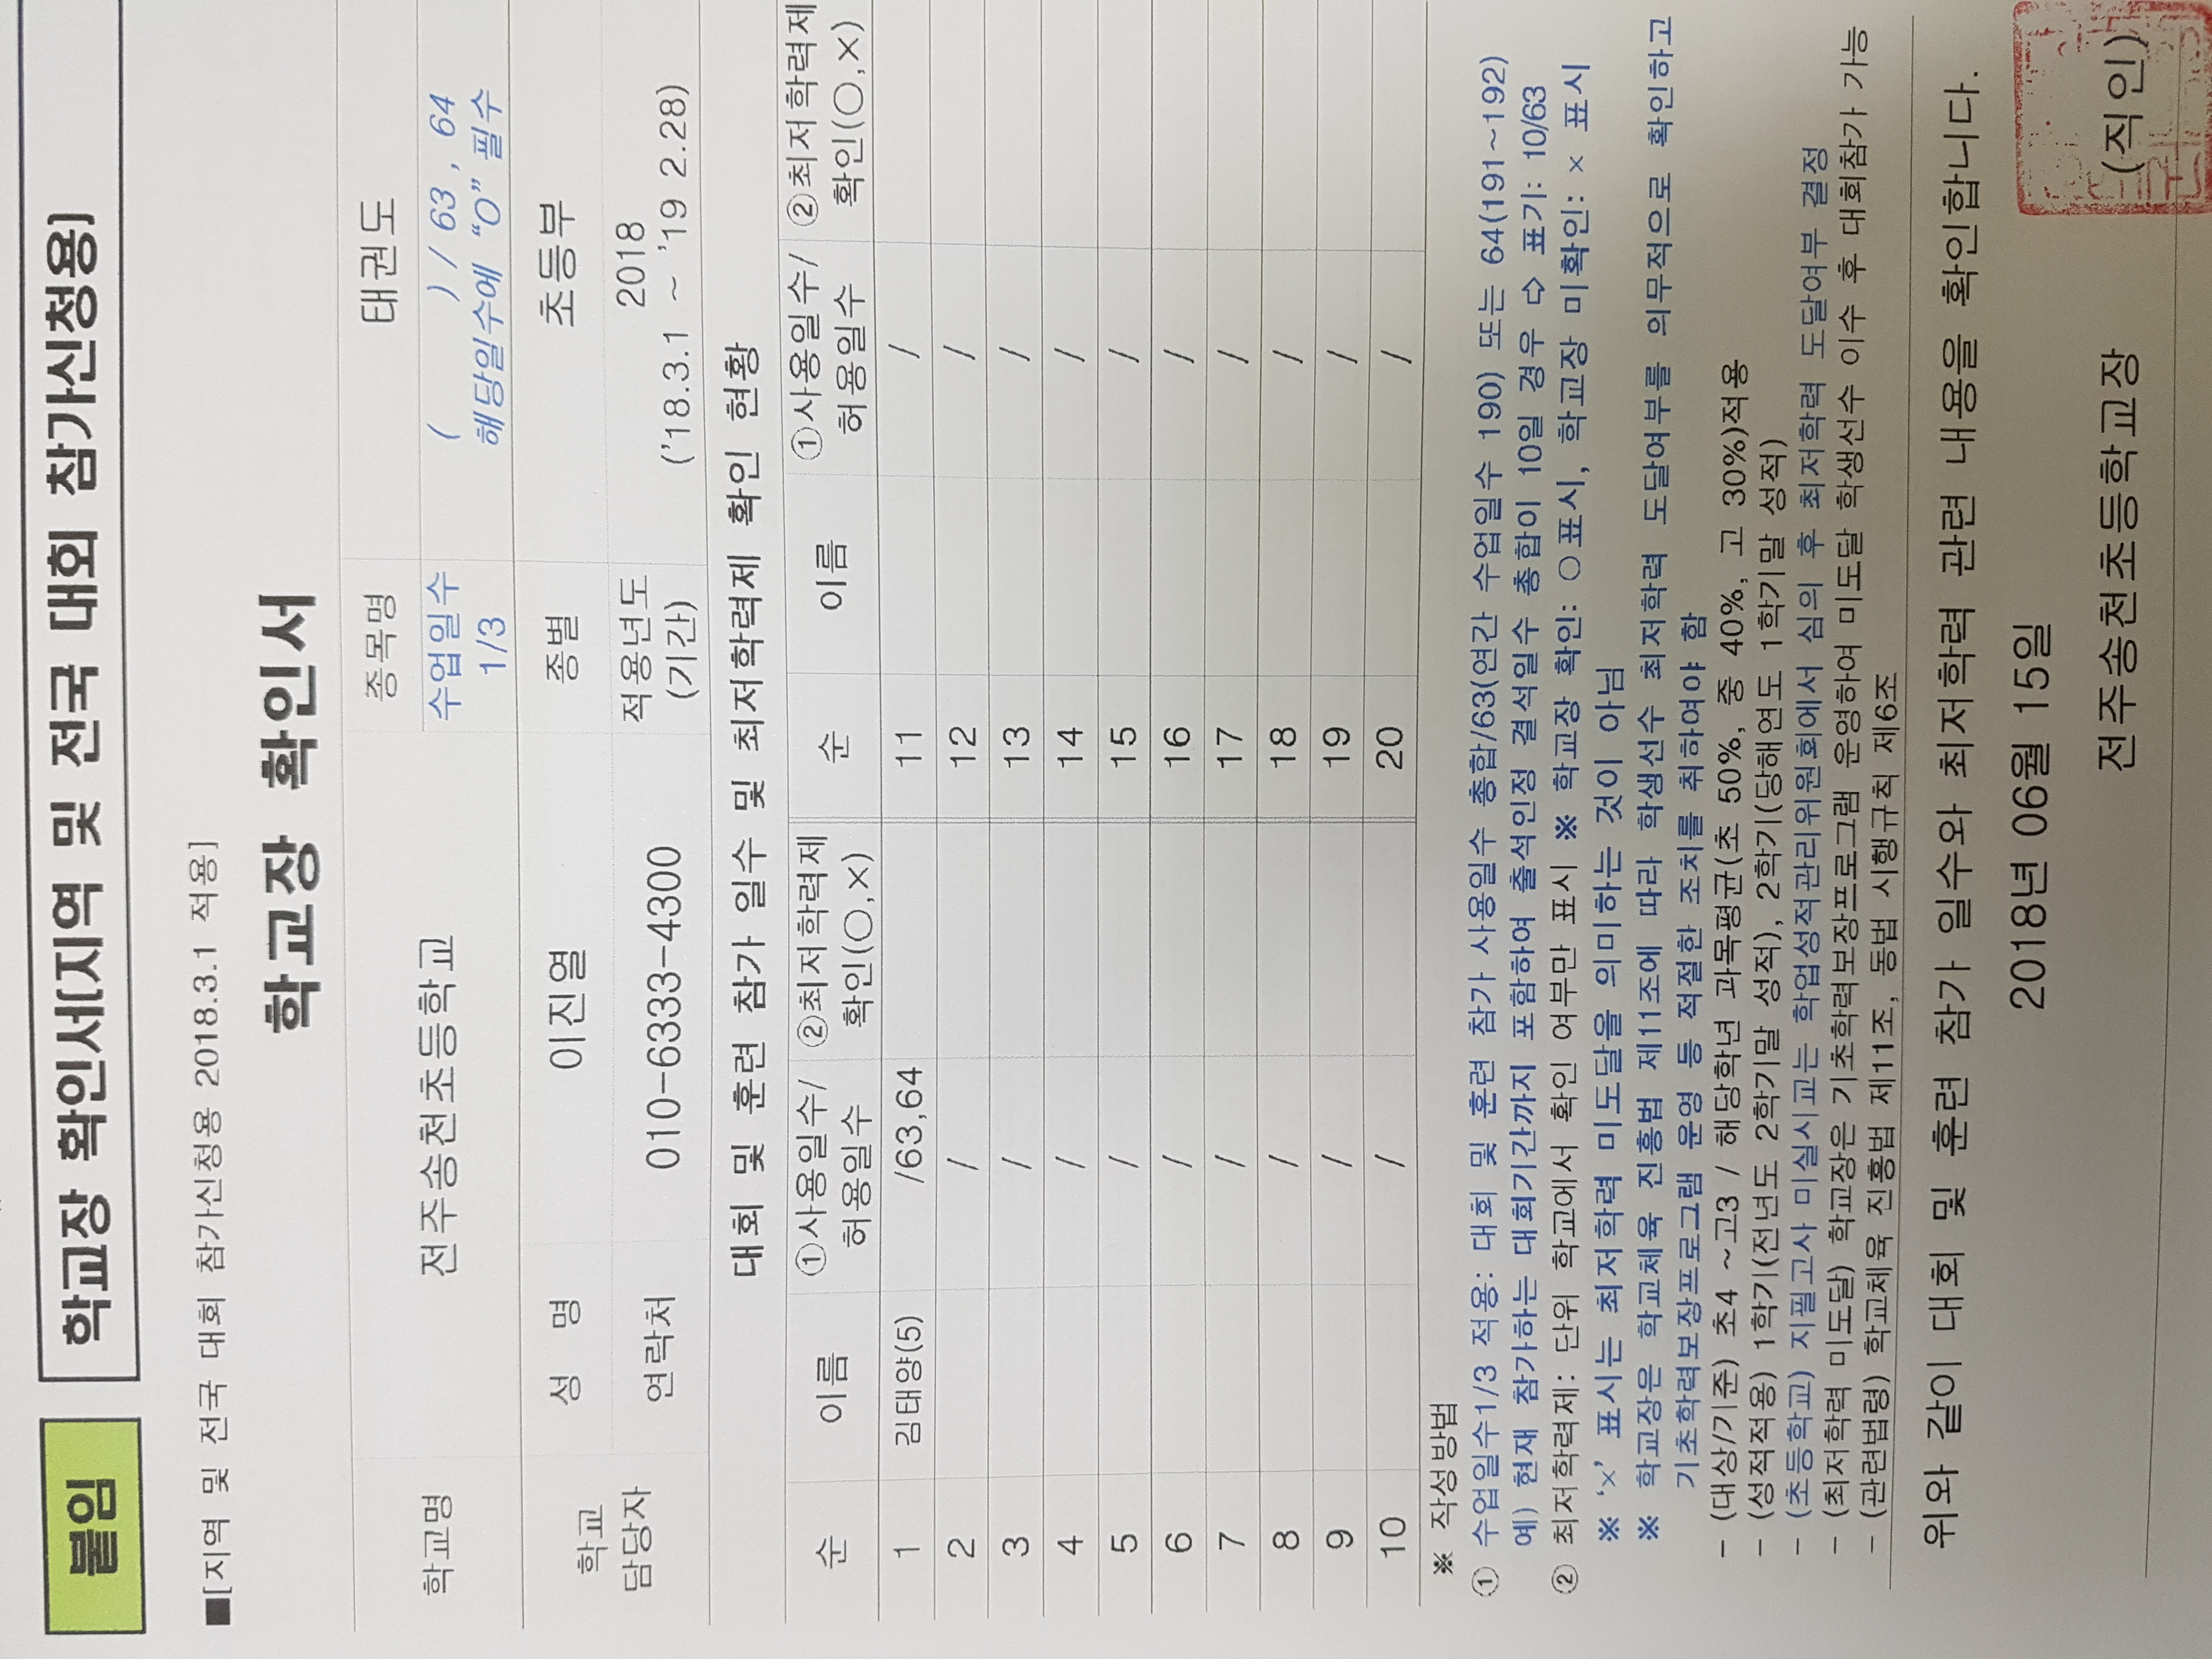 붙임 학교장 확인서[지역 및 전국 대회 참가신청용]
■[지역 및 전국 대회 참가신청용 2018.3.1 적용]
학교장 확인서
학교명 전주송천초등학교 종목명 태권도
수업일수 1/3 ( ) / 63 , 64
해당일수에 “O” 필수
학교 담당자 성 명 이진열 종별 초등부
연락처 010-6333-4300 적용년도 (기간) 2018
('18.3.1 ~ '19 2.28)
대회 및 훈련 참가 일수 및 최저학력제 확인 현황
순 이름 ①사용일수/ 허용일수 ②최저학력제 확인(○,×) 순 이름 ①사용일수/ 허용일수 ②최저학력제 확인(○,×)
1 김태양(5) /63,64 11 /
2 / 12 /
3 / 13 /
4 / 14 /
5 / 15 /
6 / 16 /
7 / 17 /
8 / 18 /
9 / 19 /
10 / 20 /
※ 작성방법
① 수업일수1/3 적용: 대회 및 훈련 참가 사용일수 총합/63(연간 수업일수 190) 또는 64(191~192)
예) 현재 참가하는 대회기간까지 포함하여 출석인정 결석일수 총합이 10일 경우 ⇨ 표기: 10/63
② 최저학력제: 단위 학교에서 확인 여부만 표시 ※ 학교장 확인: ○표시, 학교장 미확인: × 표시
※ ‘×’ 표시는 최저학력 미도달을 의미하는 것이 아님
※ 학교장은 학교체육 진흥법 제11조에 따라 학생선수 최저학력 도달여부를 의무적으로 확인하고
기초학력보장프로그램 운영 등 적절한 조치를 취하여야 함
- (대상/기준) 초4 ~고3 / 해당학년 과목평균(초 50%, 중 40%, 고 30%)적용
- (성적적용) 1학기(전년도 2학기말 성적), 2학기(당해연도 1학기말 성적)
- (초등학교) 지필고사 미실시교는 학업성적관리위원회에서 심의 후 최저학력 도달여부 결정
- (최저학력 미도달) 학교장은 기초학력보장프로그램 운영하여 미도달 학생선수 이수 후 대회참가 가능
- (관련법령) 학교체육 진흥법 제11조, 동법 시행규칙 제6조
위와 같이 대회 및 훈련 참가 일수와 최저학력 관련 내용을 확인합니다.
2018년 06월 15일
전주송천초등학교장 (직인)